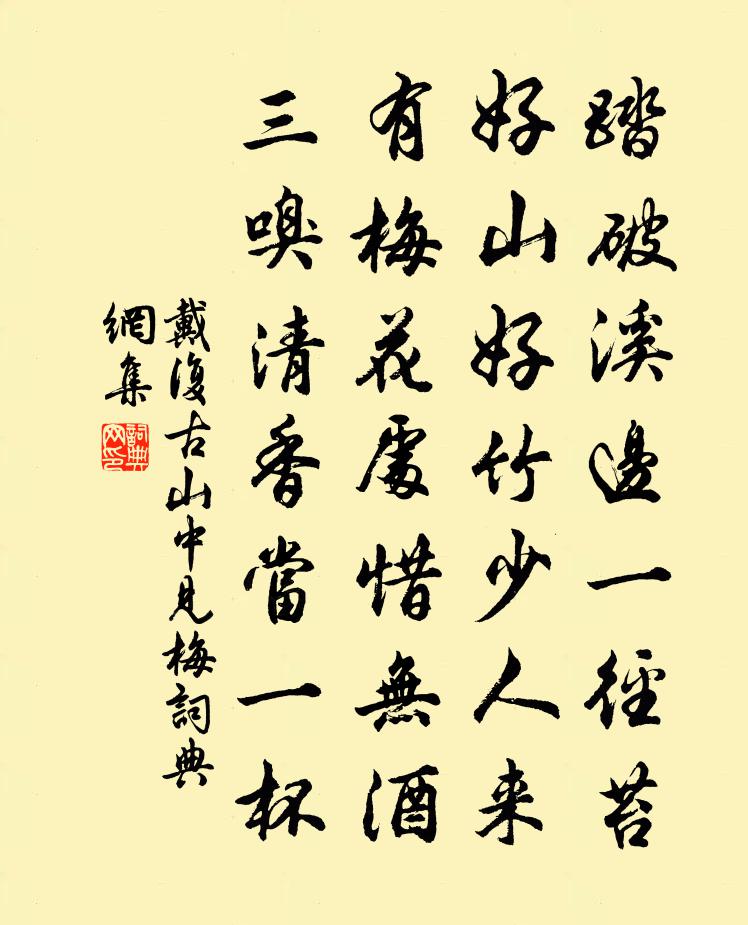 踏破溪邊一徑苔
好山好竹少人来
有梅花處惜無酒
三嗅清香當一杯
戴復古山中見梅詞典
網集
詞典
网印